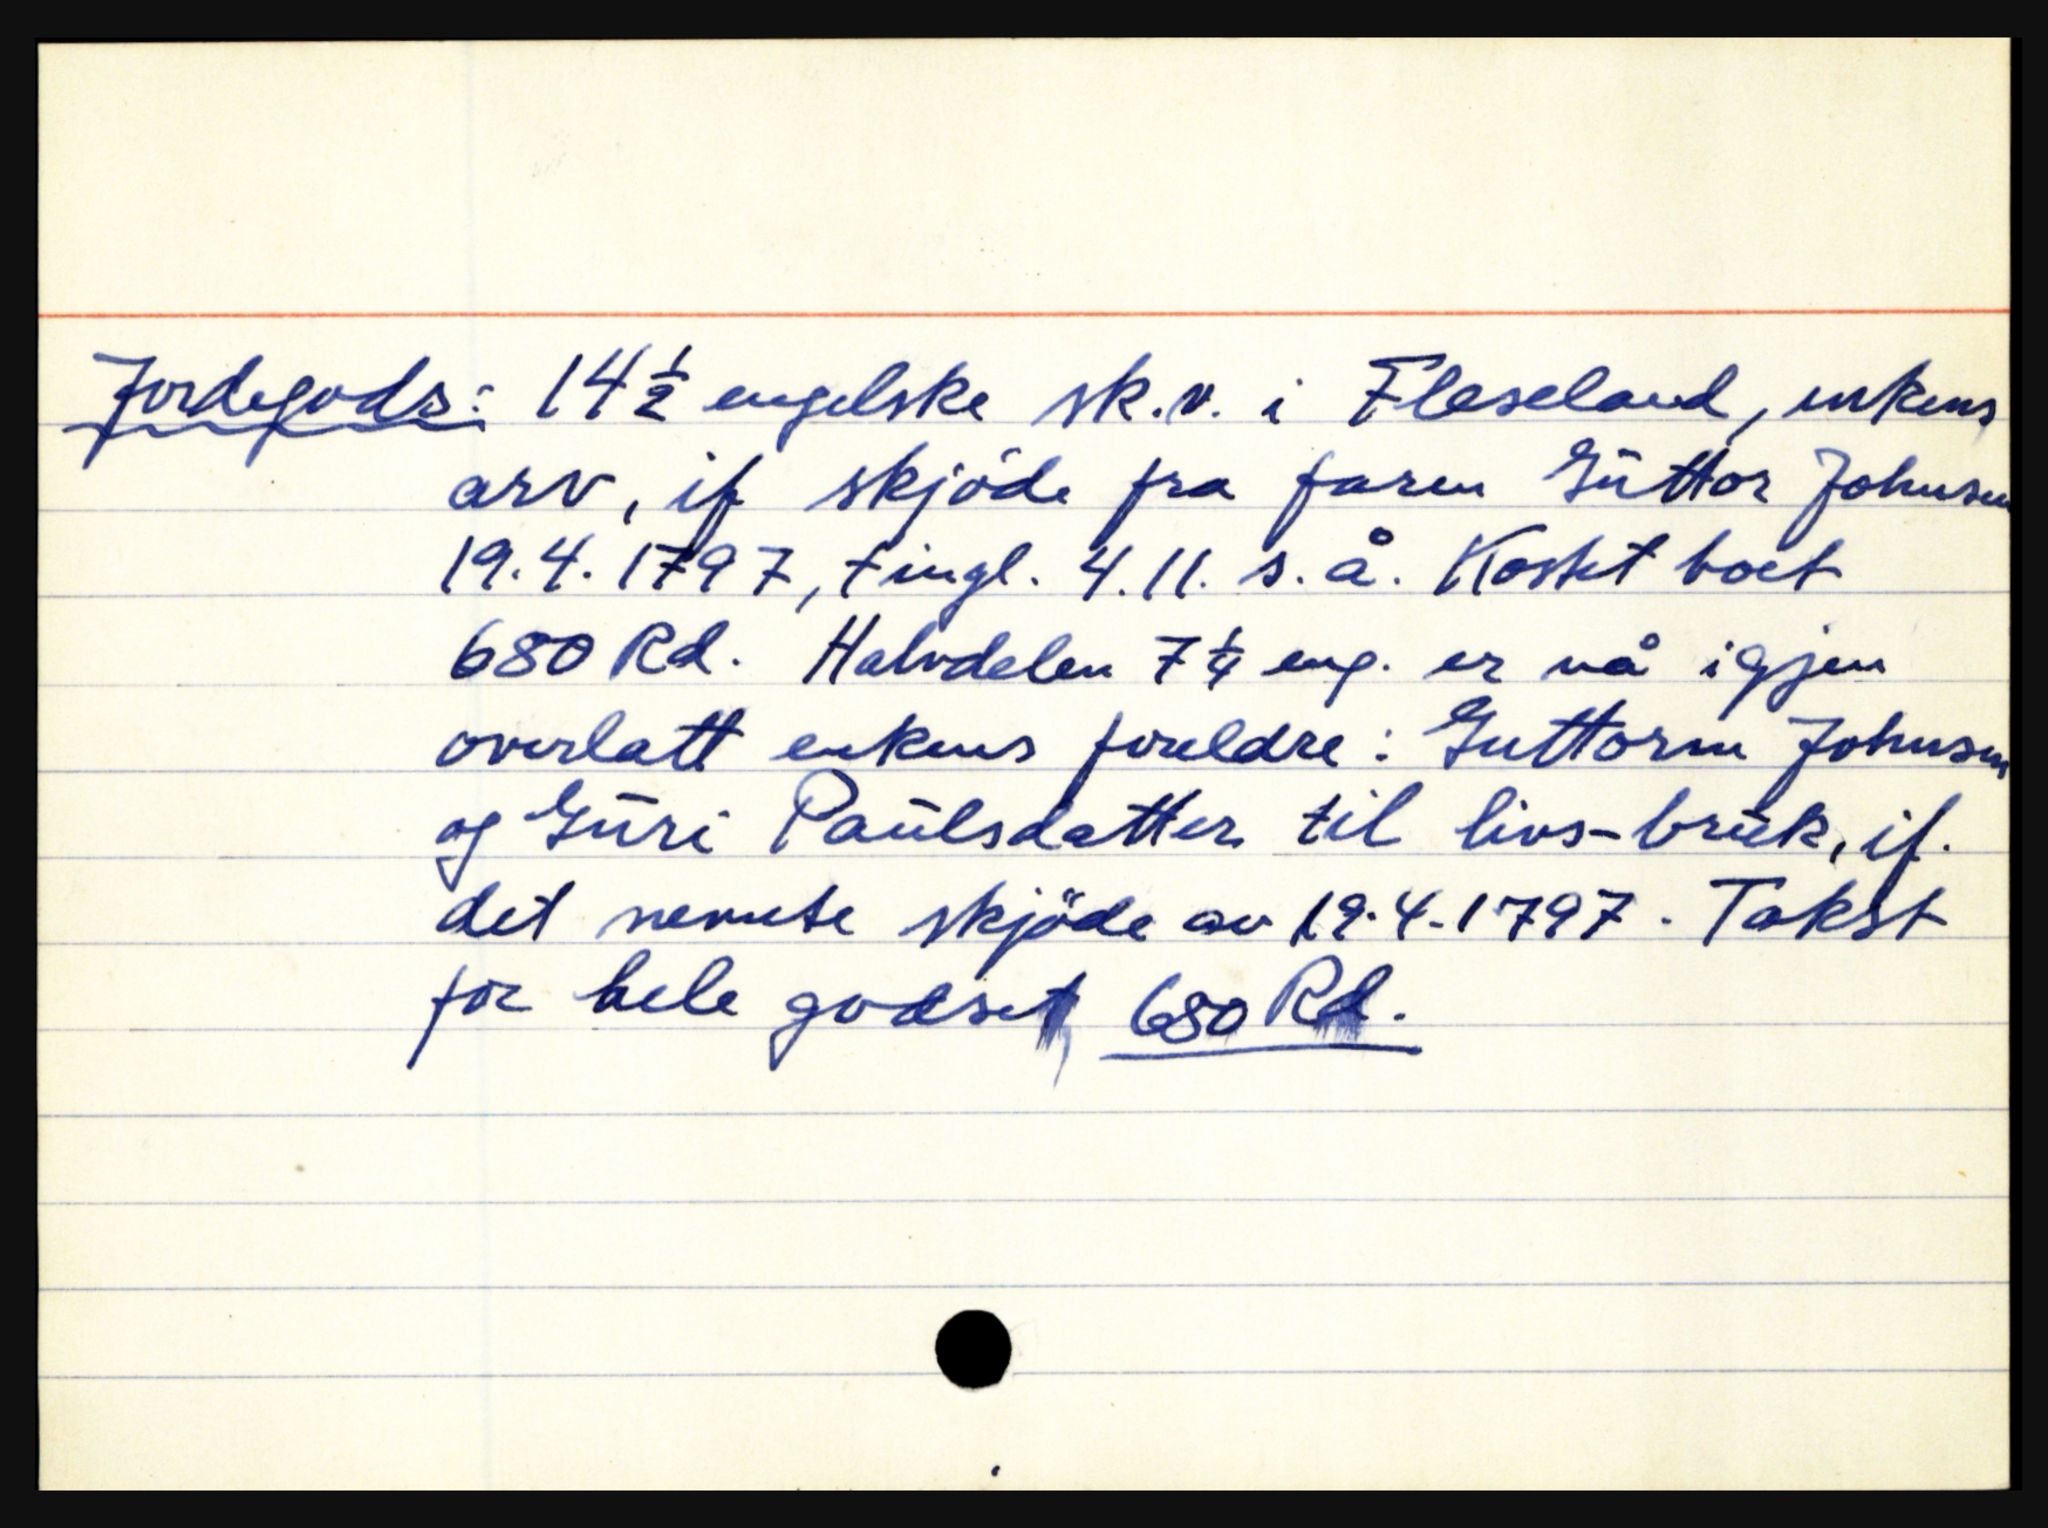 Jordegods: 14½ engelske sk.v. i Fleseland, enkens
arv, if skjöde fra faren Guttor Johnsen
19.4.1797, tingl. 4.11. s.å. Kostet boet
680 Rd. Halvdelen 7¼ eng. er nå igjen
overlatt enkens foreldre: Guttorm Johnsen
og Guri Paulsdatter til livs-bruk, if.
det nevnte skjöde av 19.4.1797. Takst
for hele godset 680 Rd.